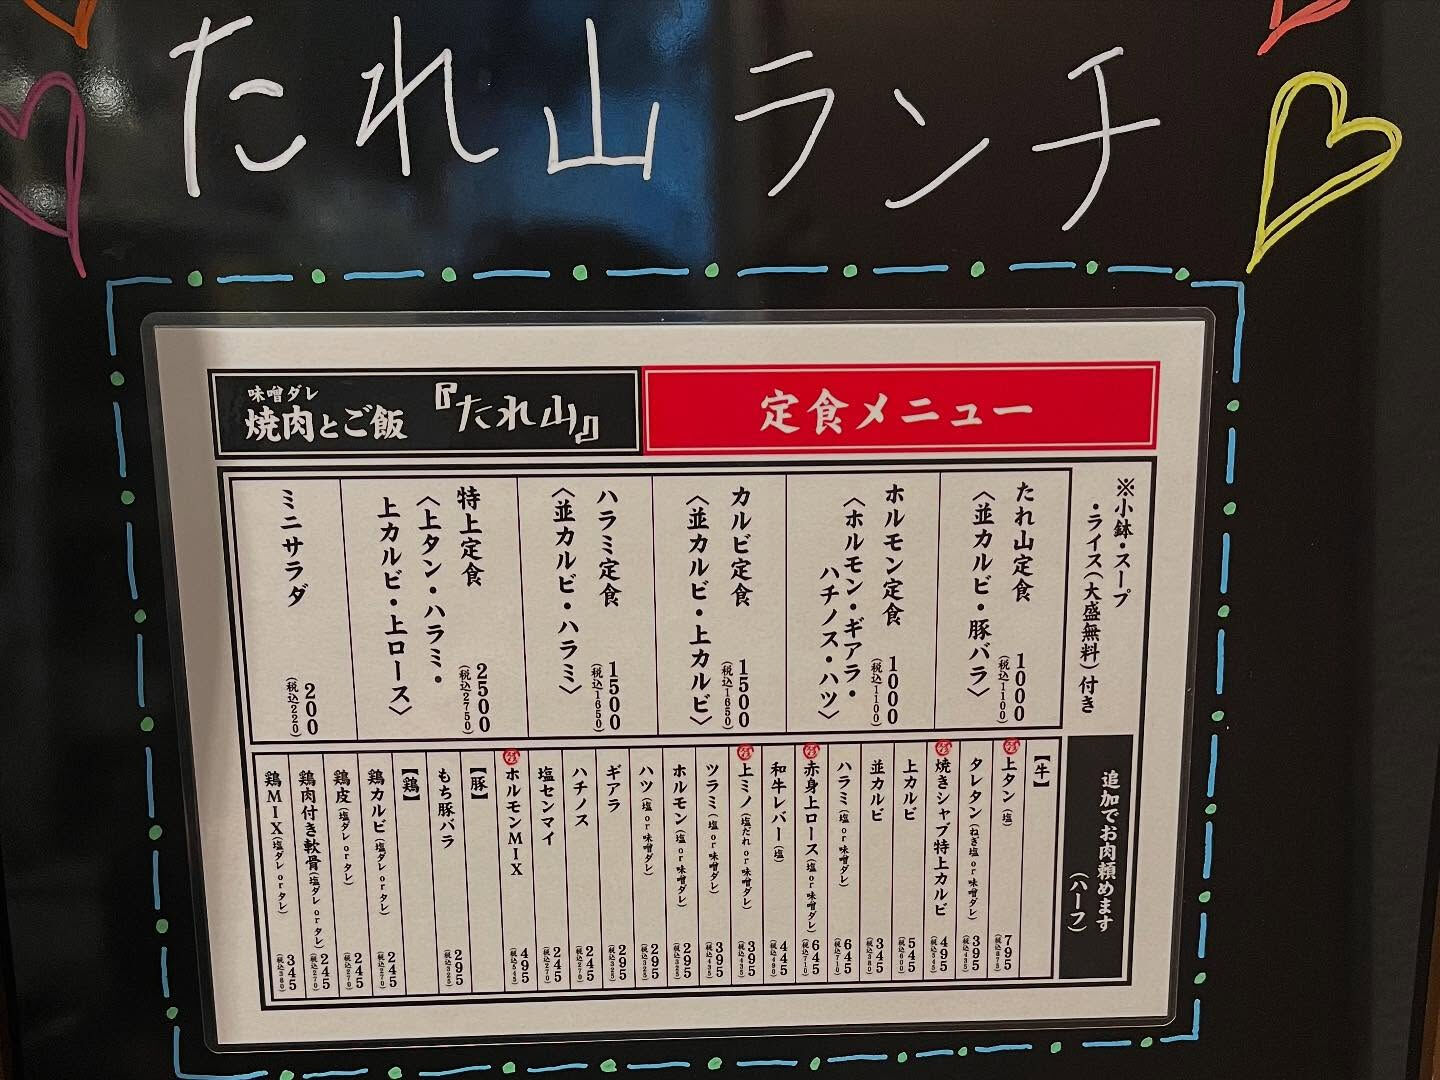 たれ山ランチ
味噌ダレ
焼肉とご飯『たれ山』
定食メニュー
※小鉢・スープ
・ライス(大盛無料)付き
たれ山定食 1000
(税込1100)
〈並カルビ・豚バラ〉
ホルモン定食 1000
(税込1100)
〈ホルモン・ギアラ・
ハチノス・ハツ〉
カルビ定食 1500
(税込1650)
〈並カルビ・上カルビ〉
ハラミ定食 1500
(税込1650)
〈並カルビ・ハラミ〉
特上定食 2500
(税込2750)
〈上タン・ハラミ・
上カルビ・上ロース〉
ミニサラダ 200
(税込220)
追加でお肉頼めます
(ハーフ)
【牛】
上タン(塩) 795
(税込875)
タレタン(ねぎ塩or味噌ダレ) 395
(税込435)
焼きシャブ特上カルビ 495
(税込545)
上カルビ 545
(税込600)
並カルビ 345
(税込380)
ハラミ(塩or味噌ダレ) 645
(税込710)
赤身上ロース(塩or味噌ダレ) 645
(税込710)
和牛レバー(塩) 445
(税込490)
上ミノ(塩だれor味噌ダレ) 395
(税込435)
ツラミ(塩or味噌ダレ) 395
(税込435)
ホルモン(塩or味噌ダレ) 295
(税込325)
ハツ(塩or味噌ダレ) 295
(税込325)
ギアラ 295
(税込325)
ハチノス 245
(税込270)
塩センマイ 245
(税込270)
ホルモンMIX 495
(税込545)
【豚】
もち豚バラ 295
(税込325)
【鶏】
鶏カルビ(塩ダレorタレ) 245
(税込270)
鶏皮(塩ダレorタレ) 245
(税込270)
鶏肉付き軟骨(塩ダレorタレ) 245
(税込270)
鶏MIX(塩ダレorタレ) 345
(税込380)